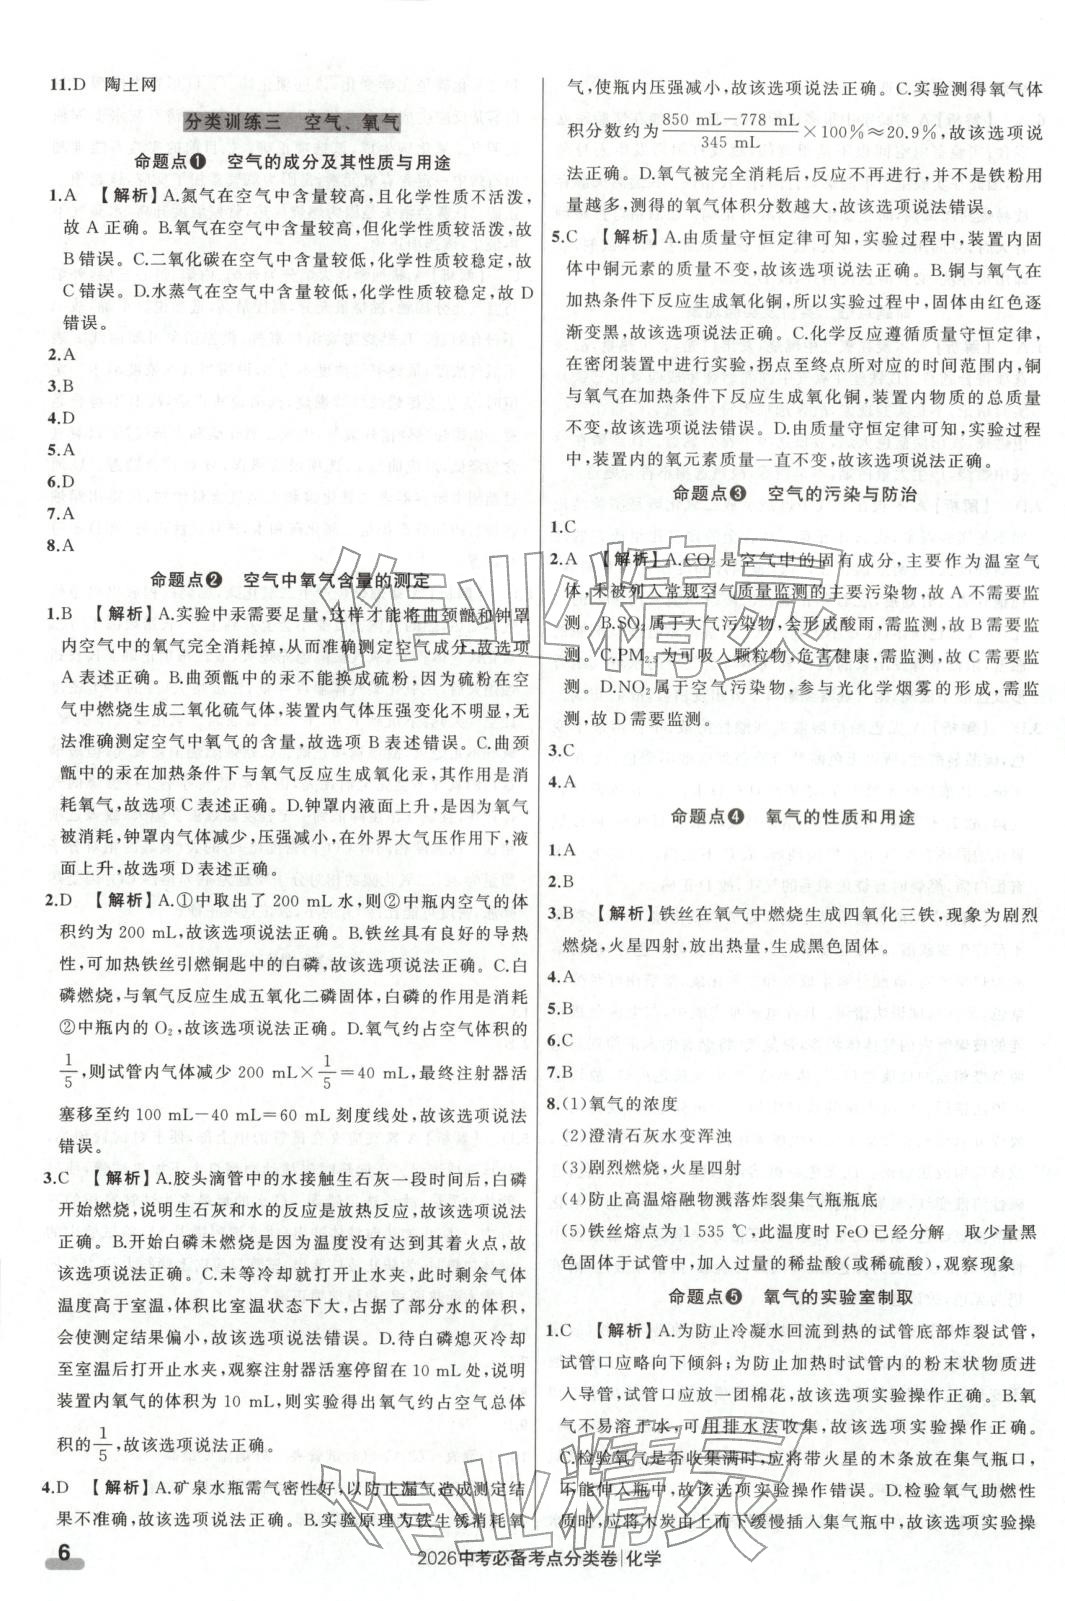 11.D　陶土网
分类训练三　空气、氧气
命题点❶　空气的成分及其性质与用途
1.A　【解析】A.氮气在空气中含量较高,且化学性质不活泼,
故 A 正确。B.氧气在空气中含量较高,但化学性质较活泼,故
B 错误。C.二氧化碳在空气中含量较低,化学性质较稳定,故
C 错误。D.水蒸气在空气中含量较低,化学性质较稳定,故 D
错误。
2.A
3.B
4.D
5.A
6.D
7.A
8.A
命题点❷　空气中氧气含量的测定
1.B　【解析】A.实验中汞需要足量,这样才能将曲颈甑和钟罩
内空气中的氧气完全消耗掉,从而准确测定空气成分,故选项
A 表述正确。B.曲颈甑中的汞不能换成硫粉,因为硫粉在空
气中燃烧生成二氧化硫气体,装置内气体压强变化不明显,无
法准确测定空气中氧气的含量,故选项 B 表述错误。C.曲颈
甑中的汞在加热条件下与氧气反应生成氧化汞,其作用是消
耗氧气,故选项 C 表述正确。D.钟罩内液面上升,是因为氧气
被消耗,钟罩内气体减少,压强减小,在外界大气压作用下,液
面上升,故选项 D 表述正确。
2.D　【解析】A.①中取出了 200 mL 水,则②中瓶内空气的体
积约为 200 mL,故该选项说法正确。B.铁丝具有良好的导热
性,可加热铁丝引燃铜匙中的白磷,故该选项说法正确。C.白
磷燃烧,与氧气反应生成五氧化二磷固体,白磷的作用是消耗
②中瓶内的 O₂,故该选项说法正确。D.氧气约占空气体积的
1/5,则试管内气体减少 200 mL×1/5=40 mL,最终注射器活
塞移至约 100 mL−40 mL=60 mL 刻度线处,故该选项说法
错误。
3.C　【解析】A.胶头滴管中的水接触生石灰一段时间后,白磷
开始燃烧,说明生石灰和水的反应放出了热量,故该选项说法
正确。B.开始白磷未燃烧是因为温度没有达到其着火点,故
该选项说法正确。C.未等冷却就打开止水夹,此时剩余气体
温度高于室温,体积比室温状态下大,占据了部分水的体积,
会使测定结果偏小,故该选项说法错误。D.待白磷熄灭冷却
至室温后打开止水夹,观察注射器活塞停留在 10 mL 处,说明
装置内氧气的体积为 10 mL,则实验得出氧气约占空气总体
积的1/5,故该选项说法正确。
4.D　【解析】A.矿泉水瓶需气密性好,以防止漏气造成测定结
果不准确,故该选项说法正确。B.实验原理为铁生锈消耗氧
气,使瓶内压强减小,故该选项说法正确。C.实验测得氧气体
积分数约为(850 mL−778 mL)/345 mL×100%≈20.9%,故该选项说
法正确。D.氧气被完全消耗后,反应不再进行,并不是铁粉用
量越多,测得的氧气体积分数越大,故该选项说法错误。
5.C　【解析】A.由质量守恒定律可知,实验过程中,装置内固
体中铜元素的质量不变,故该选项说法正确。B.铜与氧气在
加热条件下反应生成氧化铜,所以实验过程中,固体由红色逐
渐变黑,故该选项说法正确。C.化学反应遵循质量守恒定律,
在密闭装置中进行实验,拐点至终点所对应的时间范围内,铜
与氧气在加热条件下反应生成氧化铜,装置内物质的总质量
不变,故该选项说法错误。D.由质量守恒定律可知,实验过程
中,装置内的氧元素质量一直不变,故该选项说法正确。
命题点❸　空气的污染与防治
1.C
2.A　【解析】A.CO₂ 是空气中的固有成分,主要作为温室气
体,未被列入常规空气质量监测的主要污染物,故 A 不需要监
测。B.SO₂ 属于大气污染物,会形成酸雨,需监测,故 B 需要监
测。C.PM₂.₅ 为可吸入颗粒物,危害健康,需监测,故 C 需要监
测。D.NO₂ 属于空气污染物,参与光化学烟雾的形成,需监
测,故 D 需要监测。
3.C
4.A
命题点❹　氧气的性质和用途
1.A
2.B
3.B　【解析】铁丝在氧气中燃烧生成四氧化三铁,现象为剧烈
燃烧,火星四射,放出热量,生成黑色固体。
4.A
5.B
6.C
7.B
8.(1)氧气的浓度
(2)澄清石灰水变浑浊
(3)剧烈燃烧,火星四射
(4)防止高温熔融物溅落炸裂集气瓶瓶底
(5)铁丝熔点为 1 535 ℃,此温度时 FeO 已经分解　取少量黑
色固体于试管中,加入过量的稀盐酸(或稀硫酸),观察现象
命题点❺　氧气的实验室制取
1.C　【解析】A.为防止冷凝水回流到热的试管底部炸裂试管,
试管口应略向下倾斜;为防止加热时试管内的粉末状物质进
入导管,试管口应放一团棉花,故该选项实验操作正确。B.氧
气不易溶于水,可用排水法收集,故该选项实验操作正确。
C.检验氧气是否收集满时,应将带火星的木条放在集气瓶口,
不能伸入瓶内,故该选项实验操作错误。D.检验氧气助燃性
质时,应将木炭由上而下缓慢插入集气瓶,故该选项实验操
6
2026中考必备考点分类卷|化学
作业精灵
作业精灵